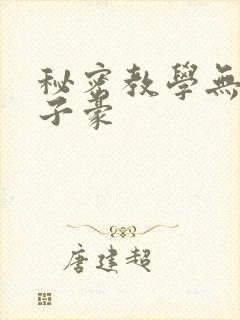 秘密教學無
子豪
唐建超